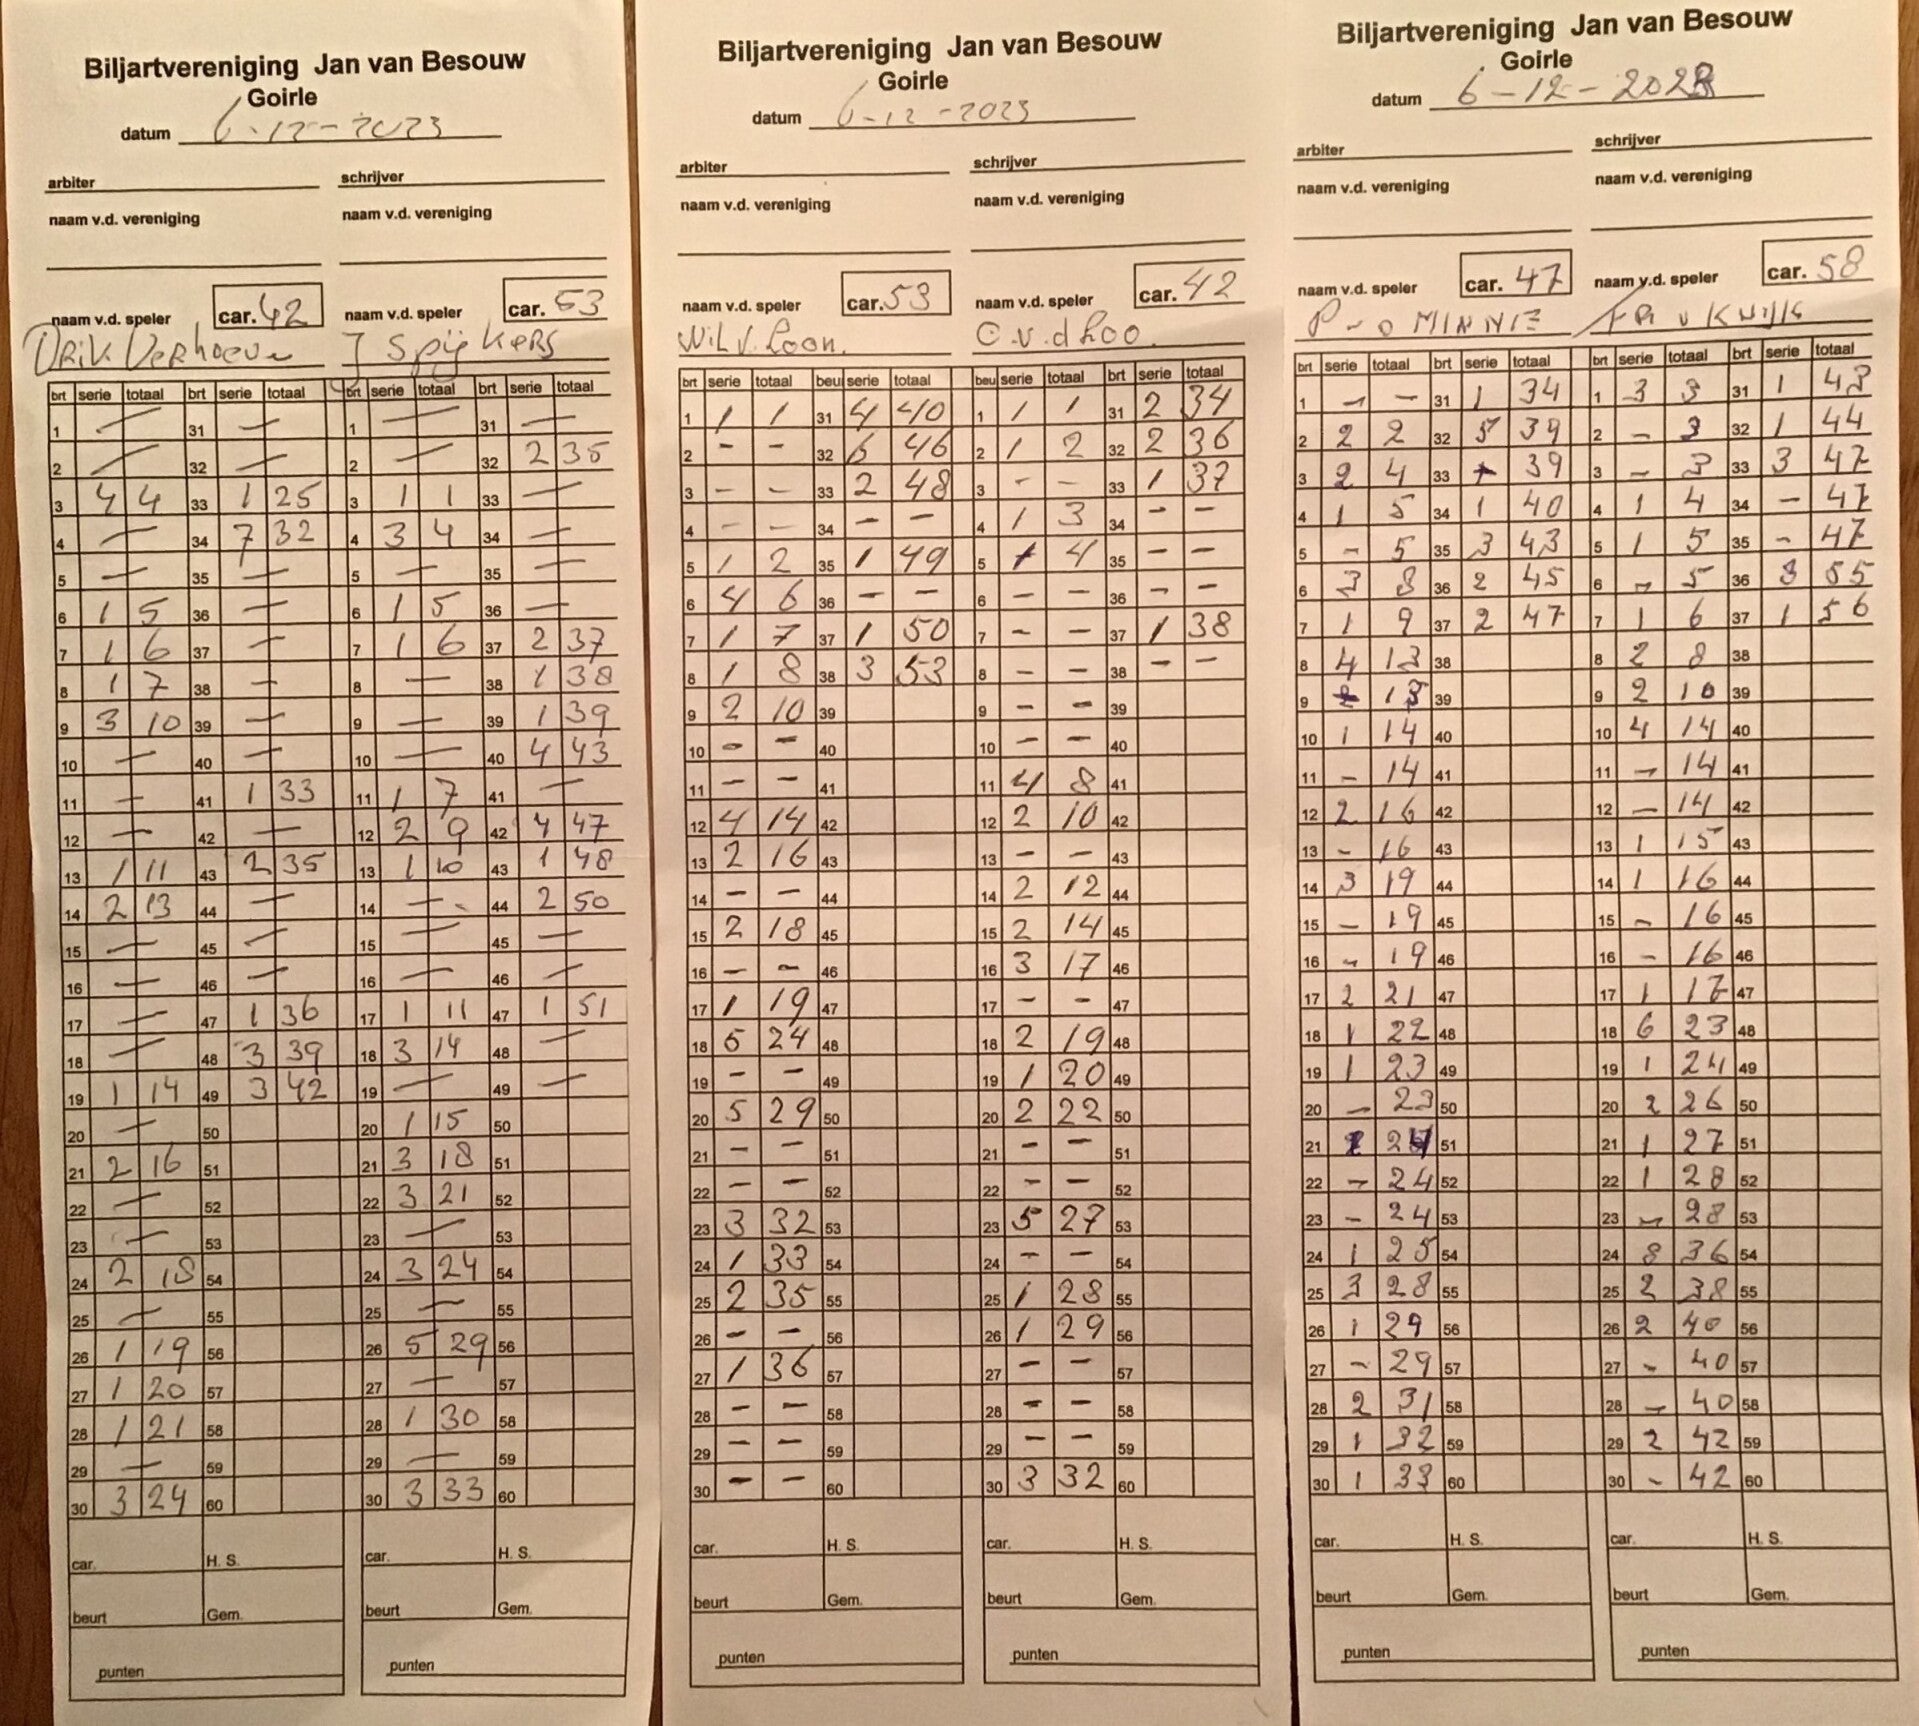 Biljartvereniging Jan van Besouw
Goirle
datum 6-12-2023
arbiter schrijver
naam v.d. vereniging naam v.d. vereniging
naam v.d. speler car. 42 naam v.d. speler car. 53
Drik Verhoeven J Spijkers
brt serie totaal brt serie totaal brt serie totaal brt serie totaal
1 — 31 — 1 — 31 —
2 — 32 — 2 — 32 2 35
3 4 4 33 1 25 3 1 1 33 —
4 — 34 7 32 4 3 4 34 —
5 — 35 — 5 — 35 —
6 1 5 36 — 6 1 5 36 —
7 1 6 37 — 7 1 6 37 2 37
8 1 7 38 — 8 — 38 1 38
9 3 10 39 — 9 — 39 1 39
10 — 40 — 10 — 40 4 43
11 — 41 1 33 11 1 7 41 —
12 — 42 — 12 2 9 42 4 47
13 1 11 43 2 35 13 1 10 43 1 48
14 2 13 44 — 14 — 44 2 50
15 — 45 — 15 — 45 —
16 — 46 — 16 — 46 —
17 — 47 1 36 17 1 11 47 1 51
18 — 48 3 39 18 3 14 48 —
19 1 14 49 3 42 19 — 49 —
20 — 50 20 1 15 50
21 2 16 51 21 3 18 51
22 — 52 22 3 21 52
23 — 53 23 — 53
24 2 18 54 24 3 24 54
25 — 55 25 — 55
26 1 19 56 26 5 29 56
27 1 20 57 27 — 57
28 1 21 58 28 1 30 58
29 — 59 29 — 59
30 3 24 60 30 3 33 60
car. H. S. car. H. S.
beurt Gem. beurt Gem.
punten punten
Biljartvereniging Jan van Besouw
Goirle
datum 6-12-2023
arbiter schrijver
naam v.d. vereniging naam v.d. vereniging
naam v.d. speler car. 53 naam v.d. speler car. 42
Wil v. Loon. C.v.d Loo.
brt serie totaal beu serie totaal beu serie totaal brt serie totaal
1 1 1 31 4 40 1 1 1 31 2 34
2 - - 32 6 46 2 1 2 32 2 36
3 - - 33 2 48 3 - - 33 1 37
4 - - 34 - - 4 1 3 34 - -
5 1 2 35 1 49 5 1 4 35 - -
6 4 6 36 - - 6 - - 36 - -
7 1 7 37 1 50 7 - - 37 1 38
8 1 8 38 3 53 8 - - 38 - -
9 2 10 39 9 - - 39
10 - - 40 10 - - 40
11 - - 41 11 4 8 41
12 4 14 42 12 2 10 42
13 2 16 43 13 - - 43
14 - - 44 14 2 12 44
15 2 18 45 15 2 14 45
16 - - 46 16 3 17 46
17 1 19 47 17 - - 47
18 5 24 48 18 2 19 48
19 - - 49 19 1 20 49
20 5 29 50 20 2 22 50
21 - - 51 21 - - 51
22 - - 52 22 - - 52
23 3 32 53 23 5 27 53
24 1 33 54 24 - - 54
25 2 35 55 25 1 28 55
26 - - 56 26 1 29 56
27 1 36 57 27 - - 57
28 - - 58 28 - - 58
29 - - 59 29 - - 59
30 - - 60 30 3 32 60
car. H. S. car. H. S.
beurt Gem. beurt Gem.
punten punten
Biljartvereniging Jan van Besouw
Goirle
datum 6-12-2023
arbiter schrijver
naam v.d. vereniging naam v.d. vereniging
naam v.d. speler car. 47 naam v.d. speler car. 58
MINNIE v KWIJK
brt serie totaal brt serie totaal brt serie totaal brt serie totaal
1 - - 31 1 34 1 3 3 31 1 43
2 2 2 32 5 39 2 - 3 32 1 44
3 2 4 33 - 39 3 - 3 33 3 47
4 1 5 34 1 40 4 1 4 34 - 47
5 - 5 35 3 43 5 1 5 35 - 47
6 3 8 36 2 45 6 - 5 36 8 55
7 1 9 37 2 47 7 1 6 37 1 56
8 4 13 38 8 2 8 38
9 13 39 9 2 10 39
10 1 14 40 10 4 14 40
11 - 14 41 11 - 14 41
12 2 16 42 12 - 14 42
13 - 16 43 13 1 15 43
14 3 19 44 14 1 16 44
15 - 19 45 15 - 16 45
16 - 19 46 16 - 16 46
17 2 21 47 17 1 17 47
18 1 22 48 18 6 23 48
19 1 23 49 19 1 24 49
20 - 23 50 20 2 26 50
21 1 24 51 21 1 27 51
22 - 24 52 22 1 28 52
23 - 24 53 23 - 28 53
24 1 25 54 24 8 36 54
25 3 28 55 25 2 38 55
26 1 29 56 26 2 40 56
27 - 29 57 27 - 40 57
28 2 31 58 28 - 40 58
29 1 32 59 29 2 42 59
30 1 33 60 30 - 42 60
car. H. S. car. H. S.
beurt Gem. beurt Gem.
punten punten